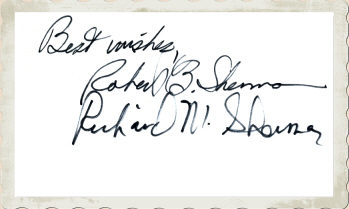 Best wishes,
Robert B. Sherman
Richard M. Sherman